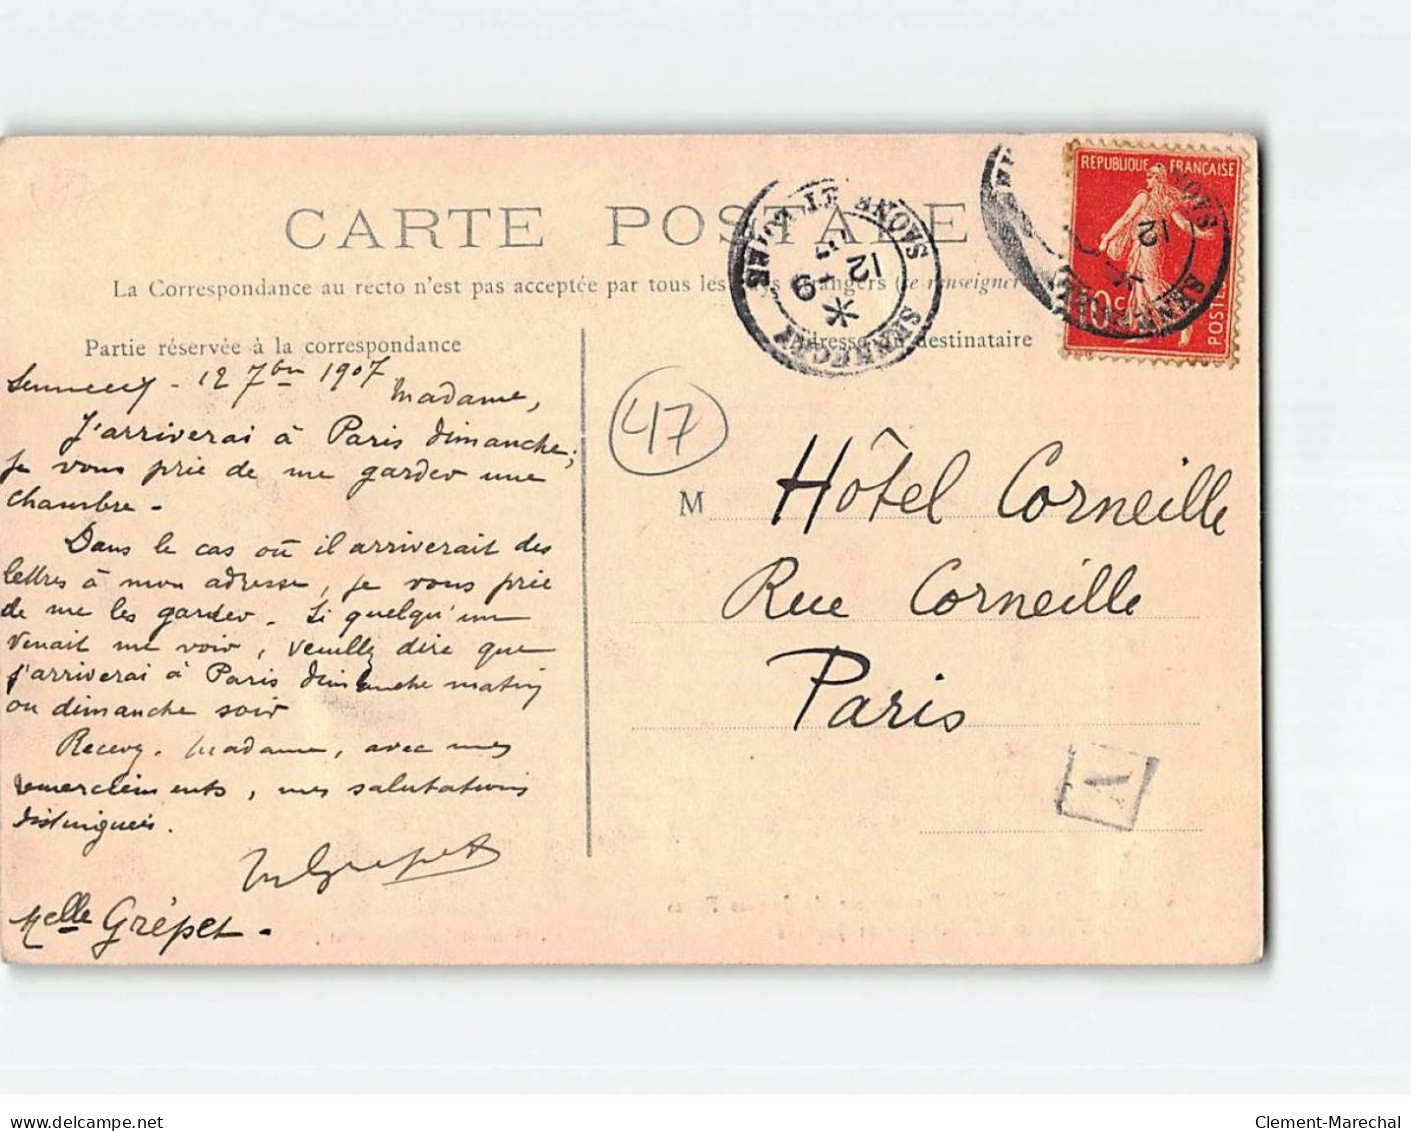 CARTE POSTALE
La Correspondance au recto n'est pas acceptée par tous les pays étrangers (se renseigner
Partie réservée à la correspondance
Adresse du destinataire
REPUBLIQUE FRANÇAISE
10c
POSTES
SENNECEY
SAONE ET LOIRE
12
9
SAONE
12
47
Sennecey - 12 7bre 1907
Madame,
J'arriverai à Paris dimanche;
je vous prie de me garder une
chambre.
Dans le cas où il arriverait des
lettres à mon adresse, je vous prie
de me les garder. Si quelqu'un
venait me voir, veuillez dire que
j'arriverai à Paris dimanche matin
ou dimanche soir
Recevez, Madame, avec mes
remerciements, mes salutations
distinguées.
MGrépet
Melle Grépet.
M Hôtel Corneille
Rue Corneille
Paris
A
delcampe.net
Clement-Marechal